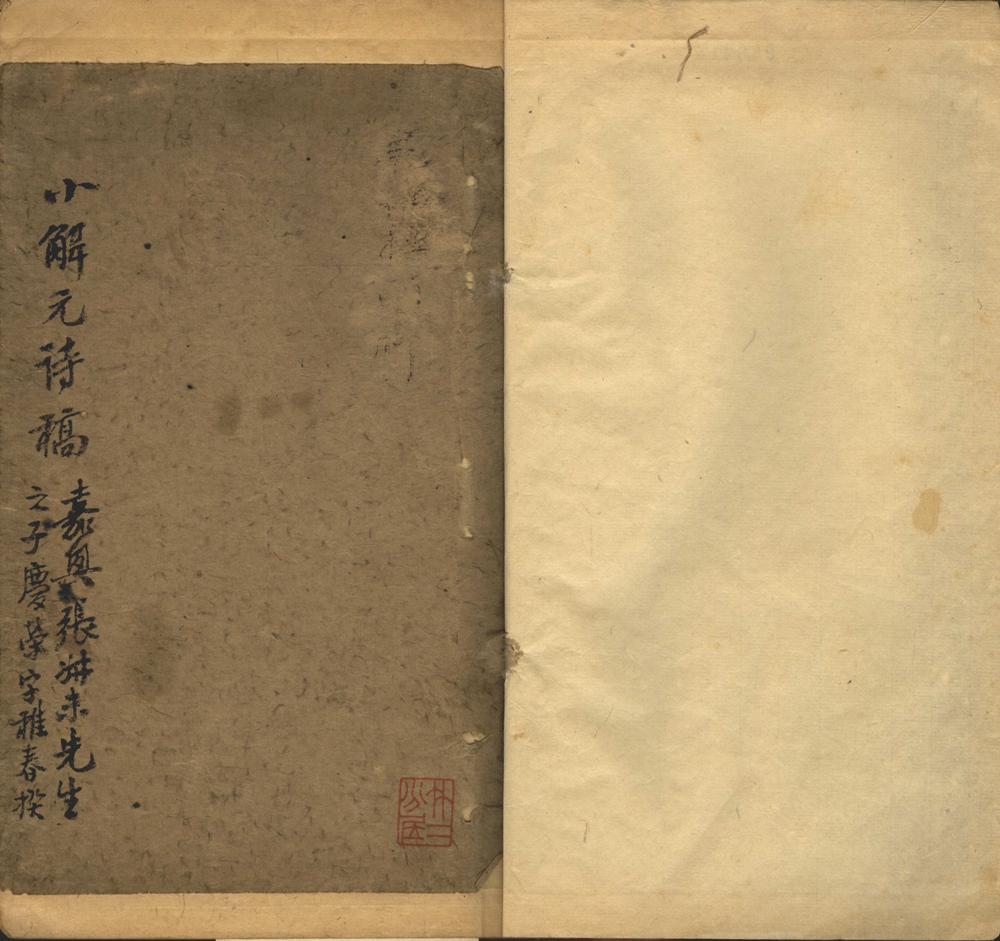 小解元詩稿
嘉興張叔未先生
之子慶榮字稚春撰